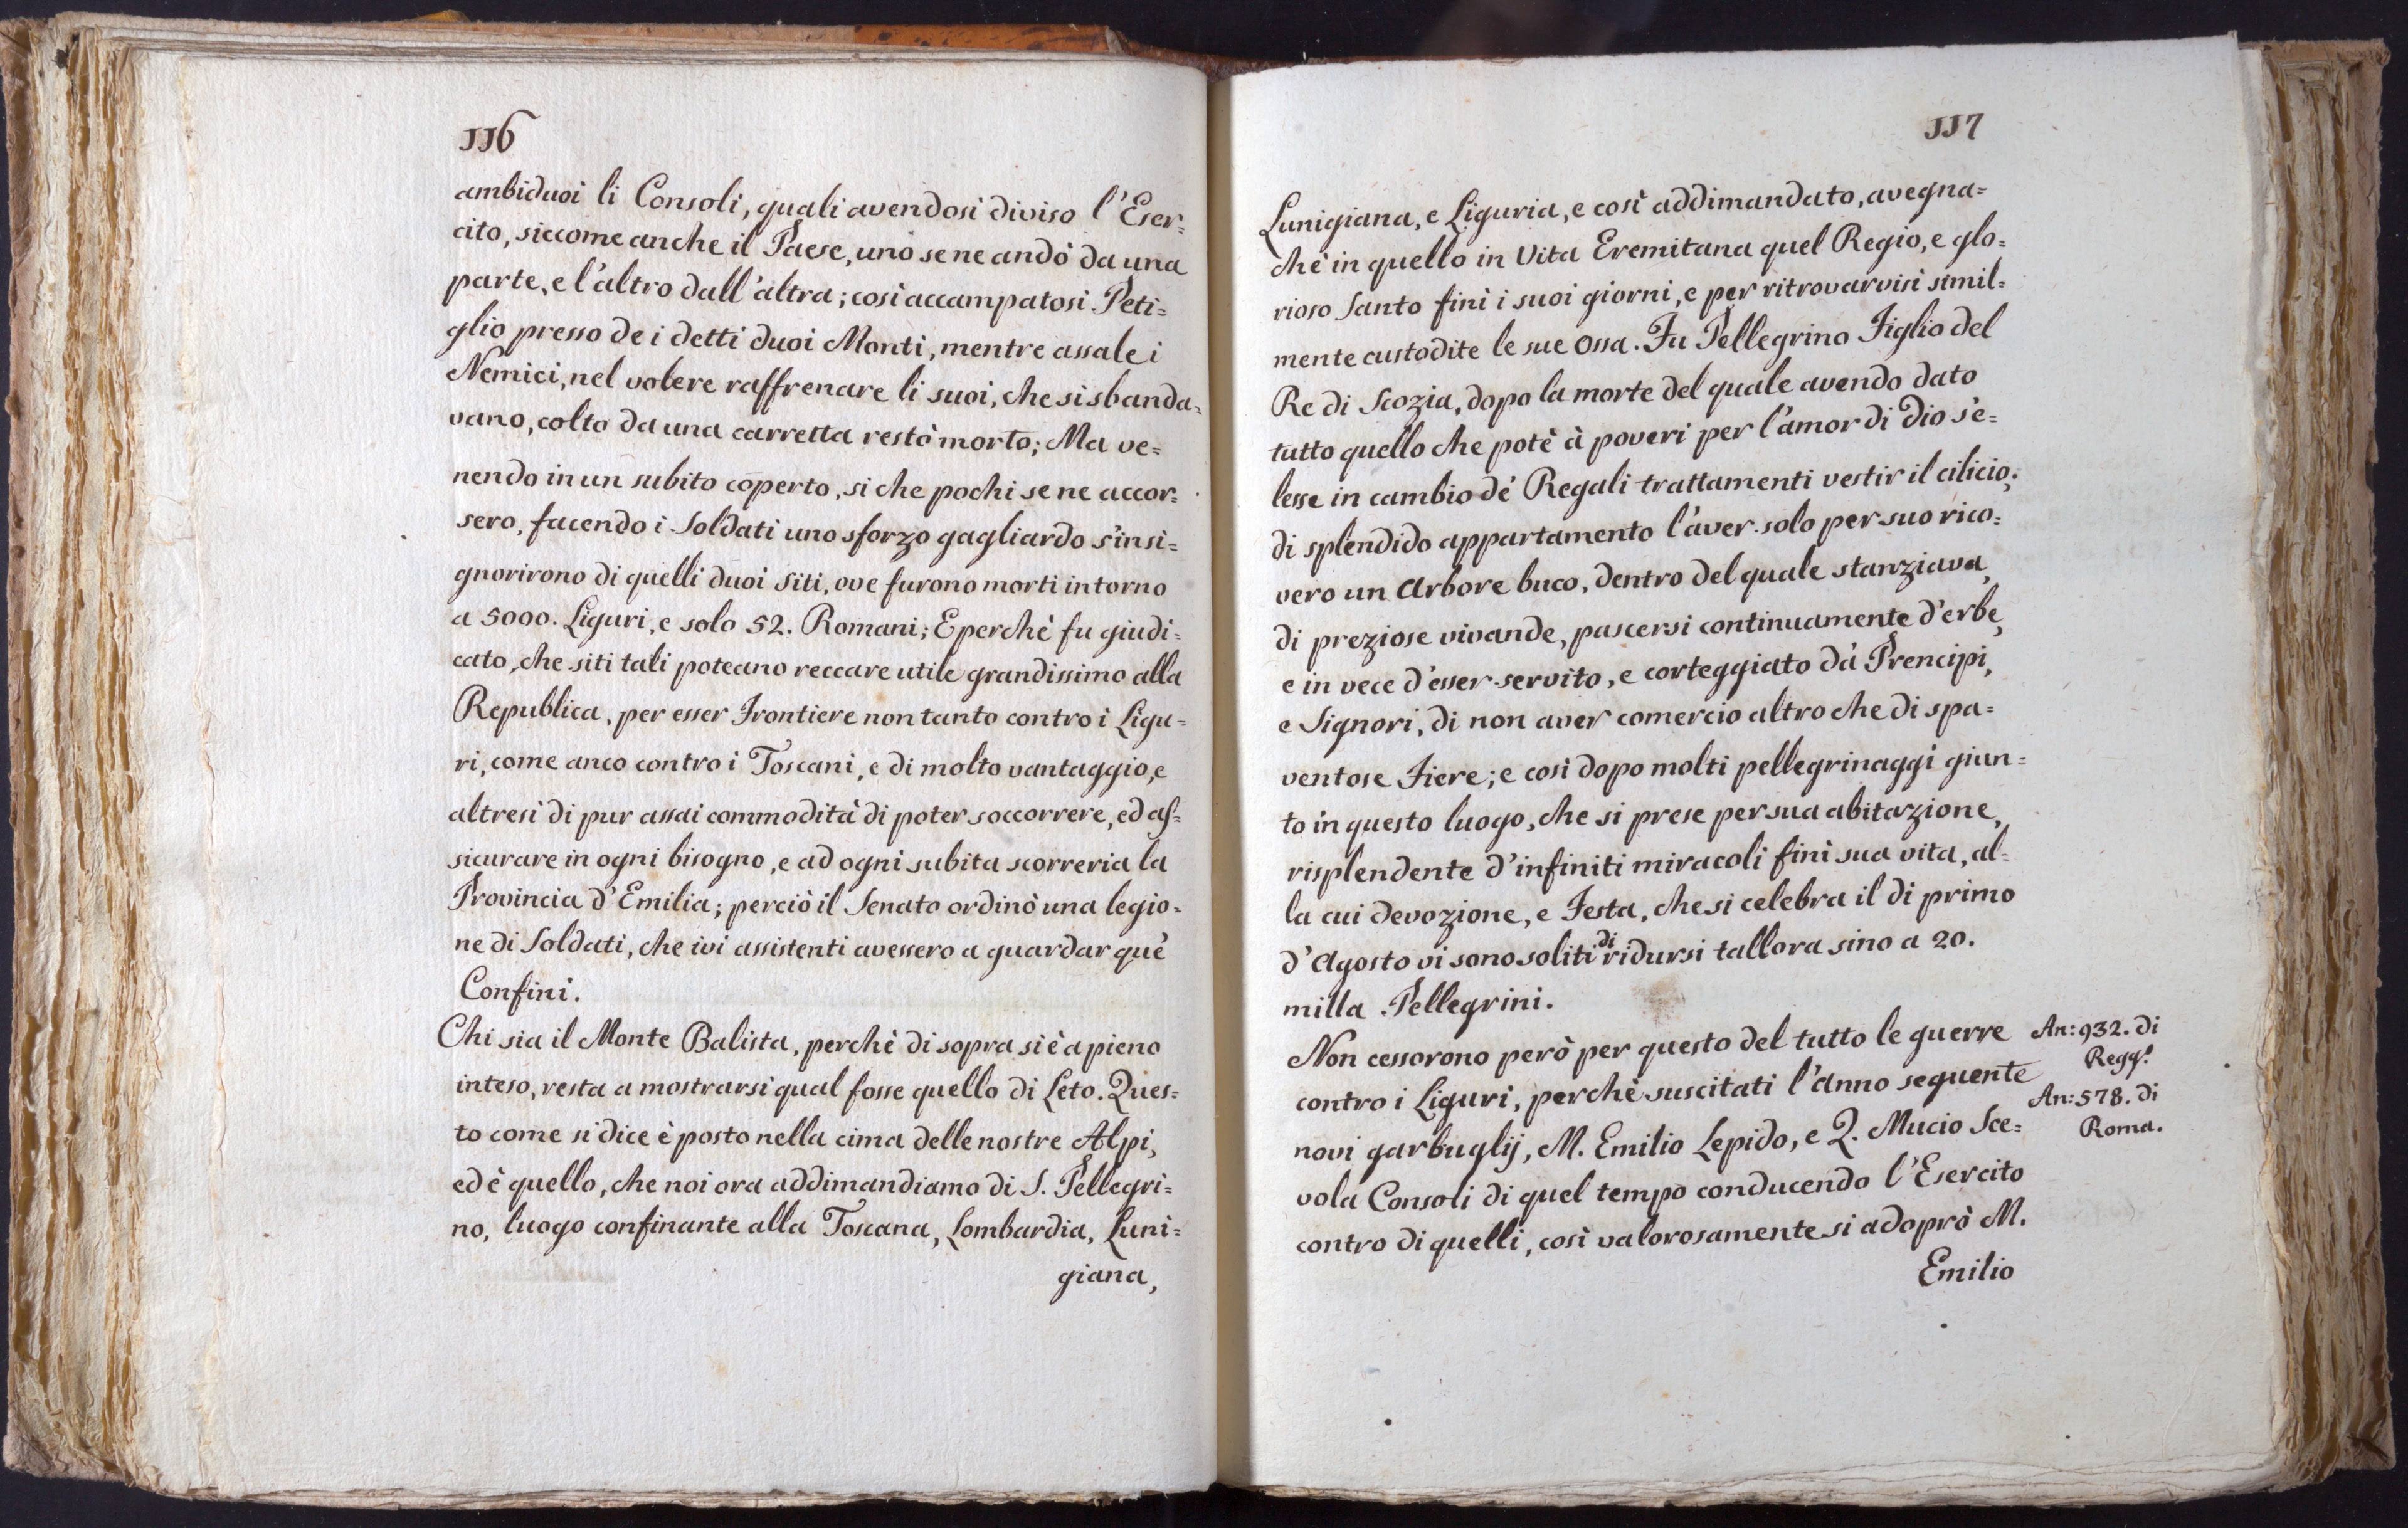 116
ambiduoi li Consoli, quali avendosi diviso l'Eser=
cito, siccome anche il Paese, uno se ne andò da una
parte, e l'altro dall'altra; così accampatosi Peti=
glio presso de i detti duoi Monti, mentre assale i
Nemici, nel volere raffrenare li suoi, che si sbanda=
vano, colto da una carretta restò morto; Ma ve=
nendo in un subito coperto, si che pochi se ne accor=
sero, facendo i Soldati uno sforzo gagliardo s'insi=
gnorirono di quelli duoi siti, ove furono morti intorno
a 5000. Liguri, e solo 52. Romani; E perchè fu giudi=
cato, che siti tali poteano reccare utile grandissimo alla
Republica, per esser Frontiere non tanto contro i Ligu=
ri, come anco contro i Toscani, e di molto vantaggio, e
altresì di pur assai commodità di poter soccorrere, ed as=
sicurare in ogni bisogno, e ad ogni subita scorreria la
Provincia d'Emilia; perciò il Senato ordinò una legio=
ne di Soldati, che ivi assistenti avessero a guardar què
Confini.
Chi sia il Monte Balista, perchè di sopra si è a pieno
inteso, resta a mostrarsi qual fosse quello di Leto. Ques=
to come si dice è posto nella cima delle nostre Alpi,
ed è quello, che noi ora addimandiamo di S. Pellegri=
no, luogo confinante alla Toscana, Lombardia, Luni=
giana,
117
Lunigiana, e Liguria, e così addimandato, avegna=
chè in quello in Vita Eremitana quel Regio, e glo=
rioso Santo finì i suoi giorni, e per ritrovarvisi simil=
mente custodite le sue Ossa. Fu Pellegrino Figlio del
Re di Scozia, dopo la morte del quale avendo dato
tutto quello che potè à poveri per l'amor di Dio s'e=
lesse in cambio dè Regali trattamenti vestir il cilicio;
di splendido appartamento l'aver solo per suo rico=
vero un Arbore buco, dentro del quale stanziava,
di preziose vivande, pascersi continuamente d'erbe,
e in vece d'esser servito, e corteggiato dà Prencipi,
e Signori, di non aver comercio altro che di spa=
ventose Fiere; e così dopo molti pellegrinaggi giun=
to in questo luogo, che si prese per sua abitazione,
risplendente d'infiniti miracoli finì sua vita, al=
la cui devozione, e Festa, che si celebra il di primo
d'Agosto vi sono soliti di ridursi tallora sino a 20.
milla Pellegrini.
Non cessorono però per questo del tutto le guerre
contro i Liguri, perchè suscitati l'Anno seguente
novi garbuglij, M. Emilio Lepido, e Q. Mucio Sce=
vola Consoli di quel tempo conducendo l'Esercito
contro di quelli, così valorosamente si adoprò M.
Emilio
An: 932. di
Regg.º
An: 578. di
Roma.